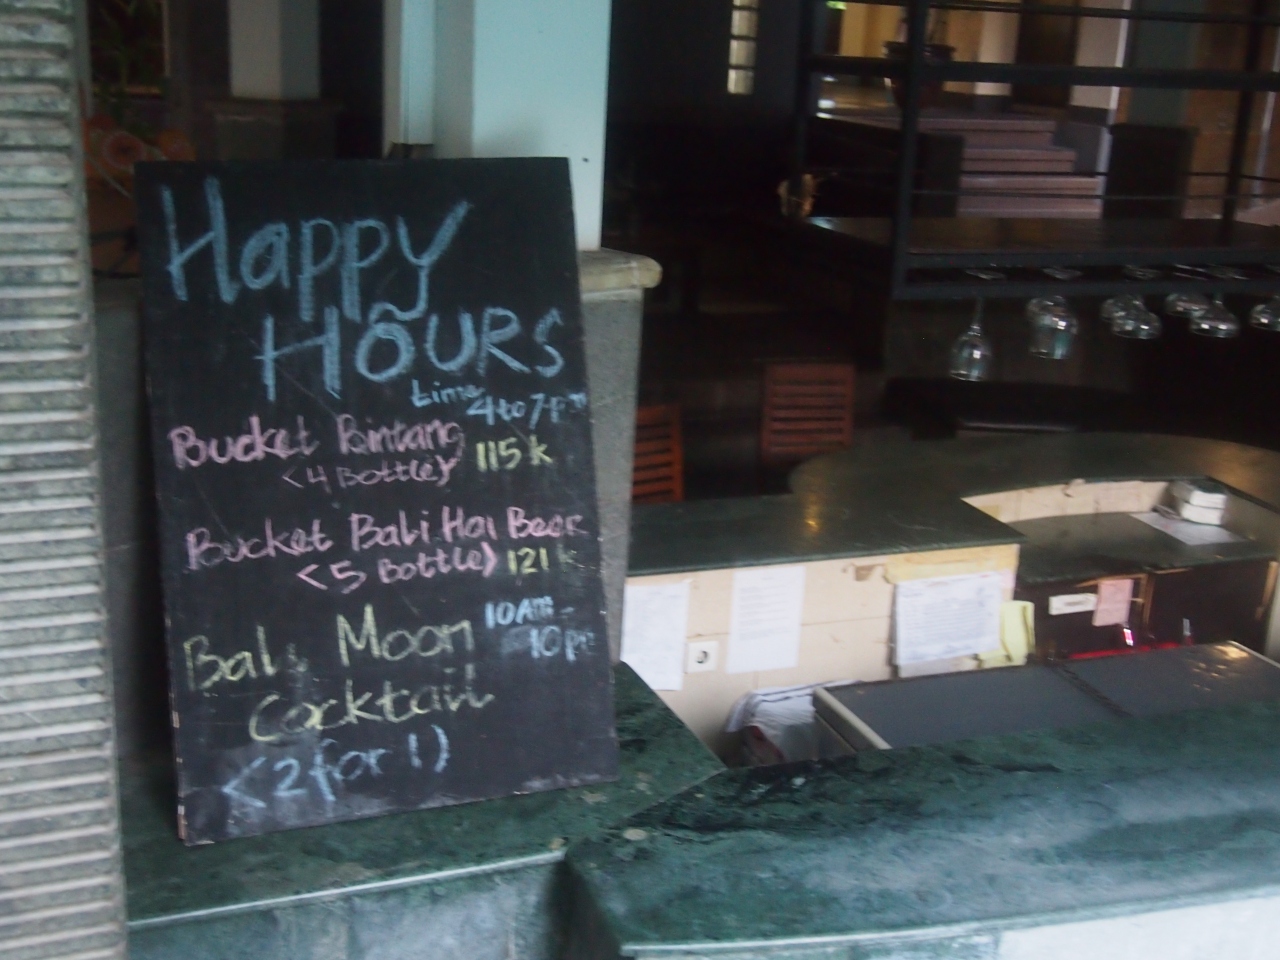 Happy
HOURS
time 4 to 7 pm
Bucket Bintang
<4 Bottle> 115 k
Bucket Bali Hai Beer
<5 Bottle> 121 k
Bali Moon 10Am -
Cocktail 10 pm
<2 for 1)